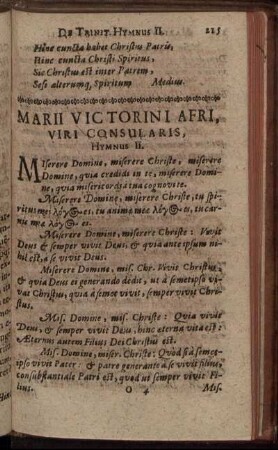 De Trinit. Hymnus II. 225
Hinc cuncta habet Christus Patris,
Hinc cuncta Christi Spiritus,
Sic Christus est inter Patrem,
Sese alterumq, Spiritum Medius.
MARII VICTORINI AFRI,
VIRI CONSULARIS,
Hymnus II.
Miserere Domine, miserere Christe, miserere
Domine, quia credidi in te, miserere Domi-
ne, quia misericordia tua cognovi te.
Miserere Domine, miserere Christe, tu spi-
ritus mei λόγος es, tu animæ meæ λόγος es, tu car-
nis meæ λόγος es.
Miserere Domine, miserere Christe: Vivit
Deus & semper vivit Deus, & quia ante ipsum ni-
hil est, a se vivit Deus.
Miserere Domine, mis. Chr. Vivit Christus,
& quia Deus ei generando dedit, ut à semetipso vi-
vat Christus, quia à semet vivit, semper vivit Chri-
stus.
Mis. Domine, mis. Christe: Quia vivit
Deus, & semper vivit Deus, hinc æterna vita est:
Æternus autem Filius Dei Christus est.
Mis. Domine, miser. Christe: Quod si à seme-
ipso vivit Pater: & patre generante à se vivit filius,
consubstantiale Patri est, quod ut semper vivit Fi-
lius. O 4 Mis.